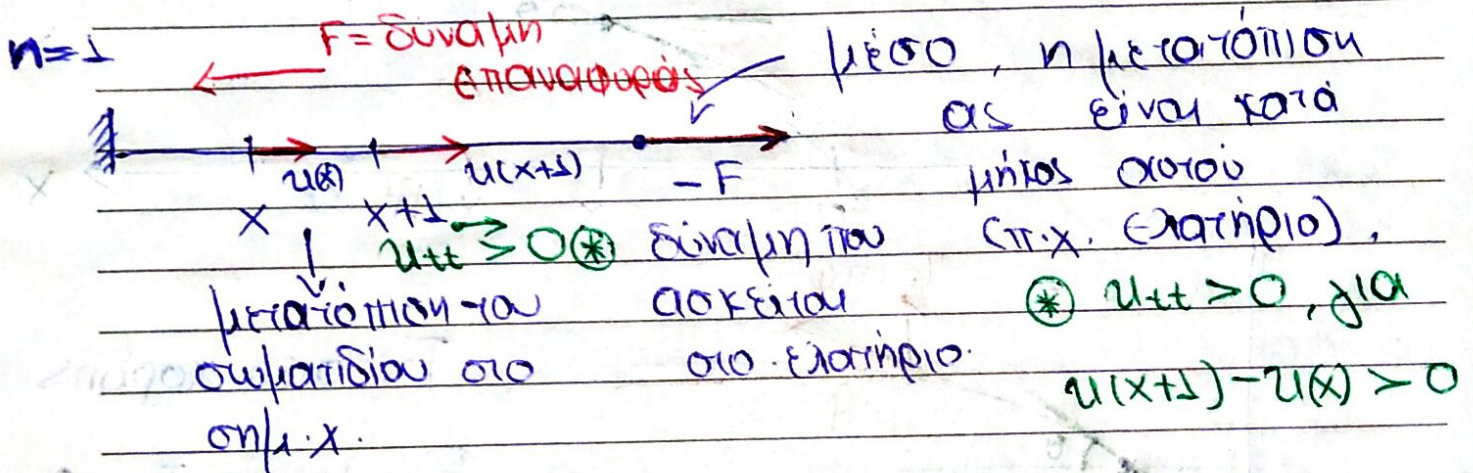 n=1
F = δύναμη
επαναφοράς
μέσο, η μετατόπιση
ας είναι κατά
μήκος αυτού
(π.χ. ελατήριο).
u(x)
u(x+1)
-F
x
x+1
utt ≥ 0 ⊛
δύναμη που
ασκείται
στο ελατήριο.
μετατόπιση του
σωματιδίου στο
σημ. x.
⊛ utt > 0, για
u(x+1) - u(x) > 0